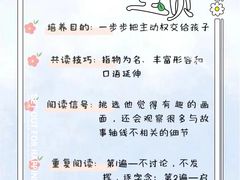 培养目的：一步步把主动权交给孩子
共读技巧：指物为名、丰富形容和
口语延伸
阅读信号：挑选他觉得有趣的画
面，还会观察很多与故
事轴线不相关的细节
重复阅读：第1遍—不讨论，不发
挥，逐字念；第2遍—启